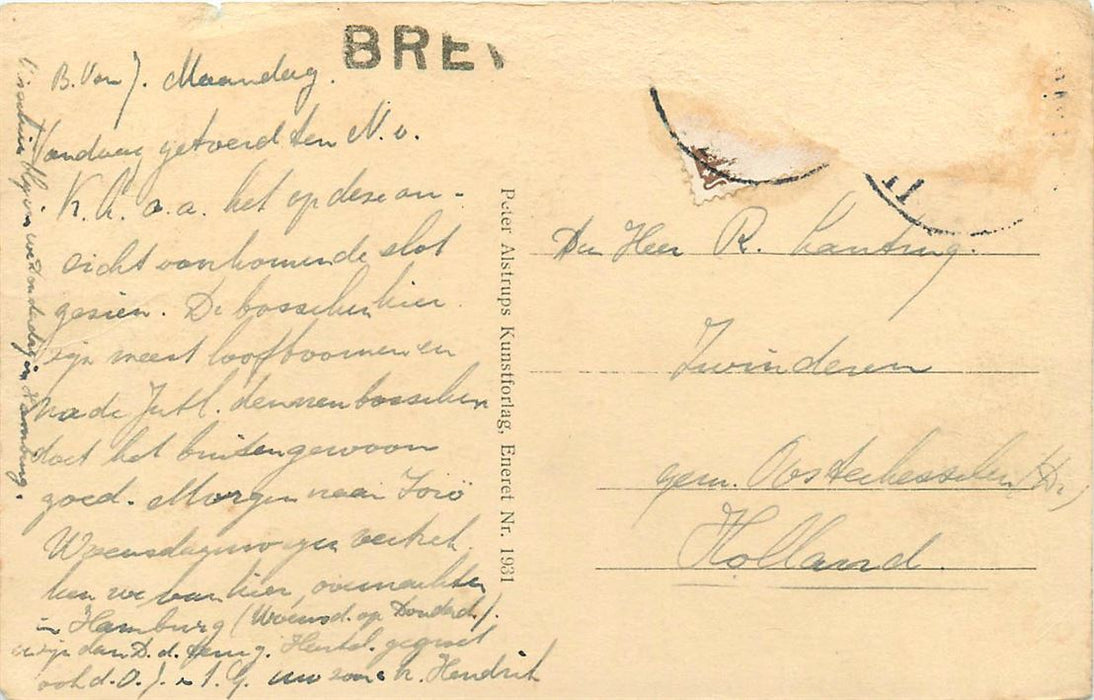 BREV
B. Van J. Maandag.
Vandaag getoerd ten N. v.
K. h. o. a. het op deze an-
zicht voorkomende slot
gezien. De bosschen hier
zijn meest loofboomen en
na de Jutl. dennenbosschen
doet het buitengewoon
goed. Morgen naar
Woensdagmorgen vertrek
ken we van hier, overnachten
in Hamburg (Woensd. op Donderd.).
en zijn dan D. d. terug. Hartel. gegroet
ook d. O. J. uw zoon h. Hendrik
in Hamburg.
Peter Alstrups Kunstforlag, Eneret Nr. 1931
Den Heer R. Kantring.
Zwinderen
gem. Oosterhesselen (Dr.)
Holland.